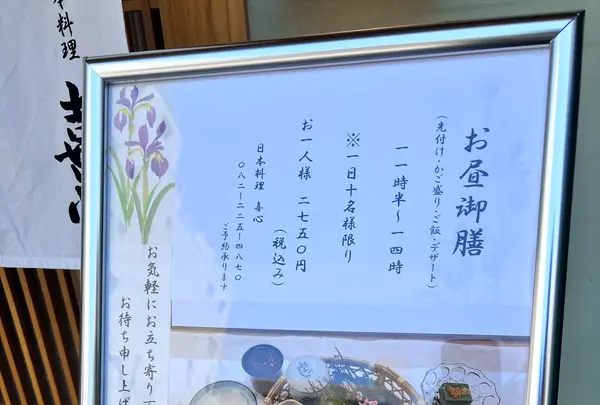 お昼御膳
（先付け・かご盛り・ご飯・デザート）
一一時半～一四時
※一日十名様限り
お一人様 二七五〇円
（税込み）
日本料理 喜心
〇八二-二二五-四八七〇
ご予約承ります
お気軽にお立ち寄り下
お待ち申し上げ
料理